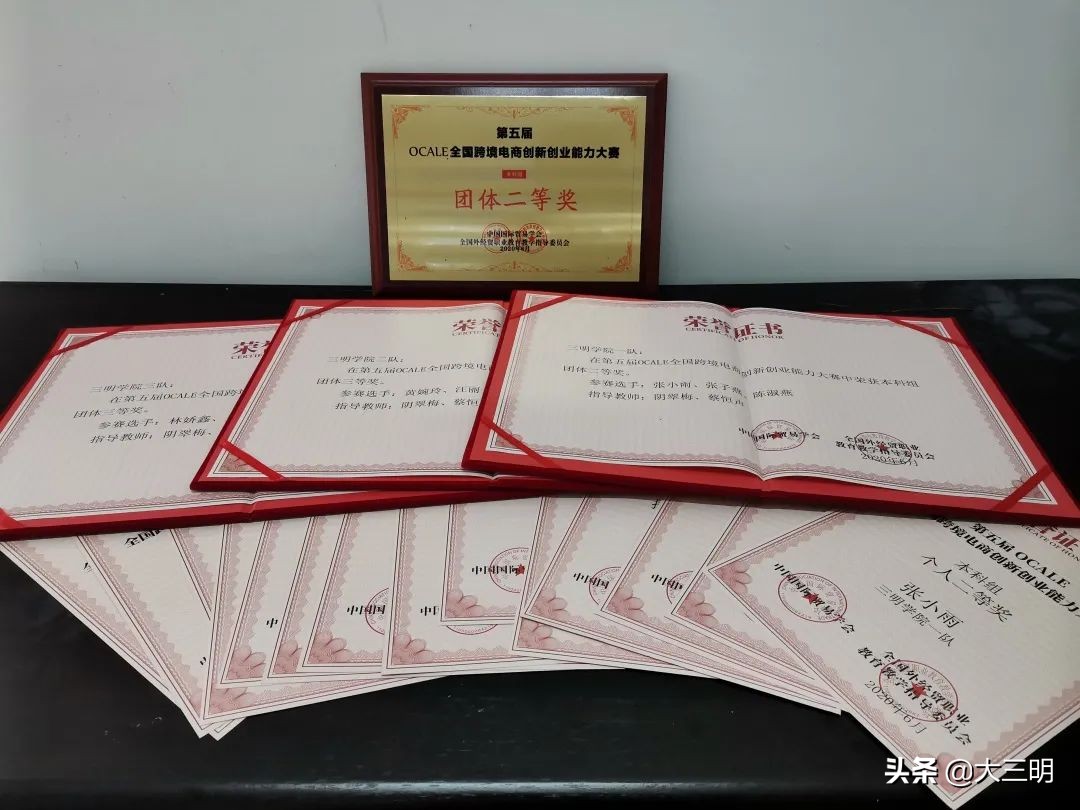 第五届
OCALE全国跨境电商创新创业能力大赛
本科组
团体二等奖
中国国际贸易学会
全国外经贸职业教育教学指导委员会
2020年6月
荣誉
三明学院三队：
在第五届OCALE全国跨
团体三等奖。
参赛选手：林娇鑫、
指导教师：阴翠梅、
荣誉
CERTIFICATE
三明学院二队：
在第五届OCALE全国跨境电
团体三等奖。
参赛选手：黄婉玲、汪丽
指导教师：阴翠梅、蔡恒
荣誉证书
CERTIFICATE OF HONOR
三明学院一队：
在第五届OCALE全国跨境电商创新创业能力大赛中荣获本科组
团体二等奖。
参赛选手：张小雨、张子燕、陈淑燕
指导教师：阴翠梅、蔡恒
中国国际贸易学会
全国外经贸职业
教育教学指导委员会
2020年6月
全国
中
中
中国国
中
中国国际
中国
中国
第五届 OCALE
跨境电商创新创业能力
本科组
个人二等奖
张小雨
三明学院一队
中国国际贸易学会
全国外经贸职业
教育教学指导委员会
2020年6月
头条 @大三明